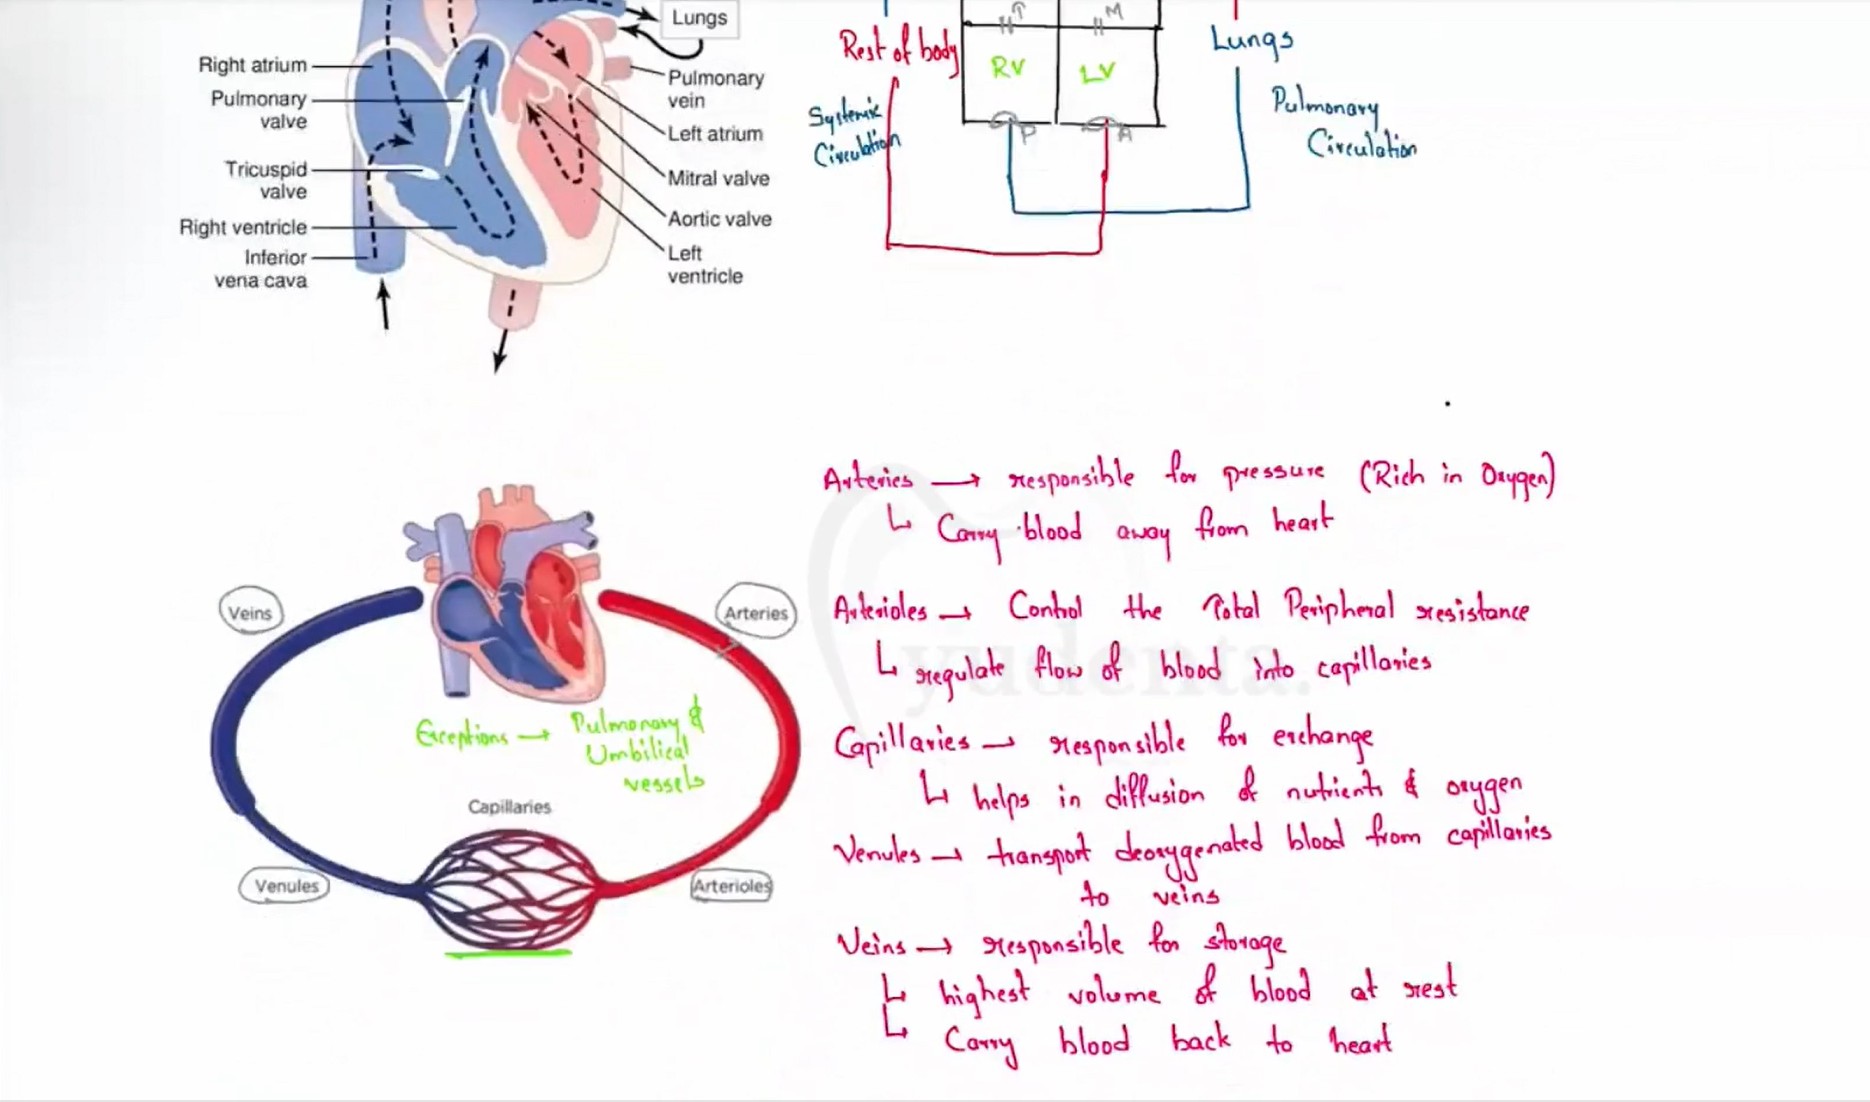 Lungs
Right atrium
Pulmonary
valve
Tricuspid
valve
Right ventricle
Inferior
vena cava
Pulmonary
vein
Left atrium
Mitral valve
Aortic valve
Left
ventricle
T M
Rest of body
RV LV
Lungs
Systemic
Circulation
P A
Pulmonary
Circulation
Arteries → responsible for pressure (Rich in Oxygen)
Carry blood away from heart
Arterioles → Control the Total Peripheral resistance
regulate flow of blood into capillaries
Capillaries → responsible for exchange
helps in diffusion of nutrients & oxygen
Venules → transport deoxygenated blood from capillaries
to veins
Veins → responsible for storage
highest volume of blood at rest
Carry blood back to heart
Veins
Arteries
Exceptions → Pulmonary &
Umbilical
vessels
Capillaries
Venules
Arterioles
yudenta.